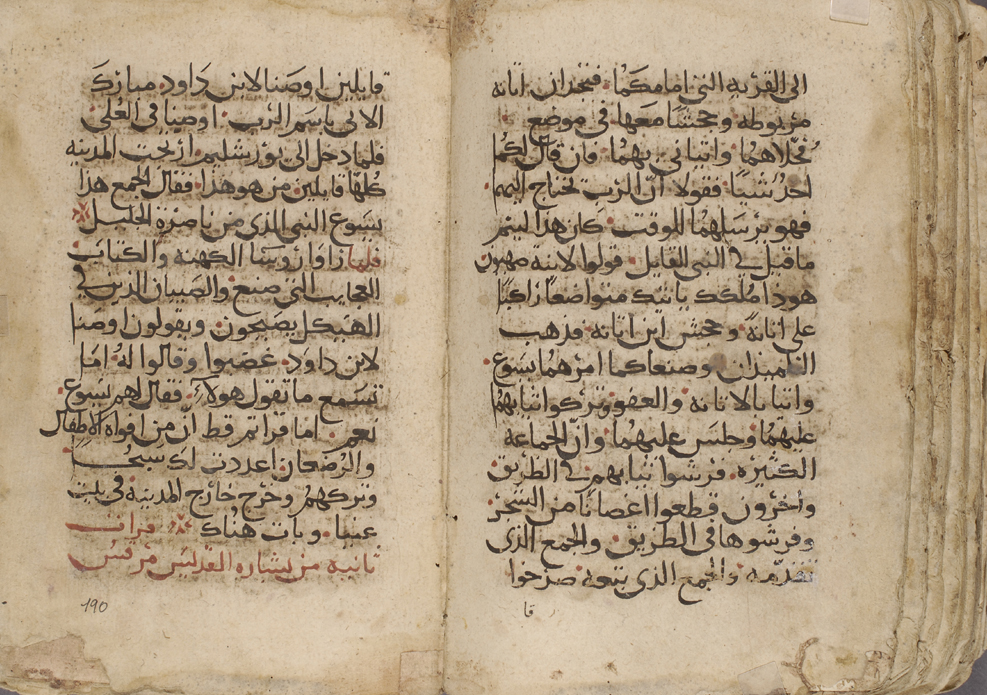 الى القريه التي امامكما. فتجدان اتانه
مربوطه وجحشًا معها في موضع
فحلاهما واتياني بهما. فان قال لكما
احدٌ شيًا فقولا انّ الرب يحتاج اليهم
فهو يرسلهما للوقت. كان هذا ليتم
ما قيل في النبي القايل. قولوا لابنة صهيون
هوذا ملكك ياتيك متواضعا راكبا
على اتانة. وجحش ابن اتانه فذهب
التلميذان وصنعا كما امرهما يسوع.
واتيا بالاتانه والعفو وتركوا ثيابهم
عليهما وجلس عليهما. وانّ الجماعه
الكثيره. فرشوا ثيابهم في الطريق
واخرون قطعوا اغصانًا من الشجر.
وفرشوها في الطريق. والجمع الذي
تقدمه والجمع الذي يتبعه صرخوا
قا
قايلين اوصنا لابن داود. مبارك
الاتي باسم الرب. اوصنا في العلى.
فلما دخل الى يورشليم ارتجت المدينه
كلها قايلين. من هو هذا. فقال الجمع هذا
يسوع النبي الذي من ناصرة الجليل
فلما راوا روسا الكهنه والكتاب
العجايب التي صنع. والصبيان الذين في
الهيكل يصيحون. ويقولون اوصنا
لابن داود. غضبوا وقالوا له. اما
تسمع ما تقول هولاء. فقال لهم يسوع.
نعم. اما قراتم قط انّ من افواه الاطفال
والرضعان اعددت لك سبحًا
وتركهم وخرج خارج المدينه في بيت
عنيا. وبات هناك قراة
ثانيه من بشاره القديس مرقس
190